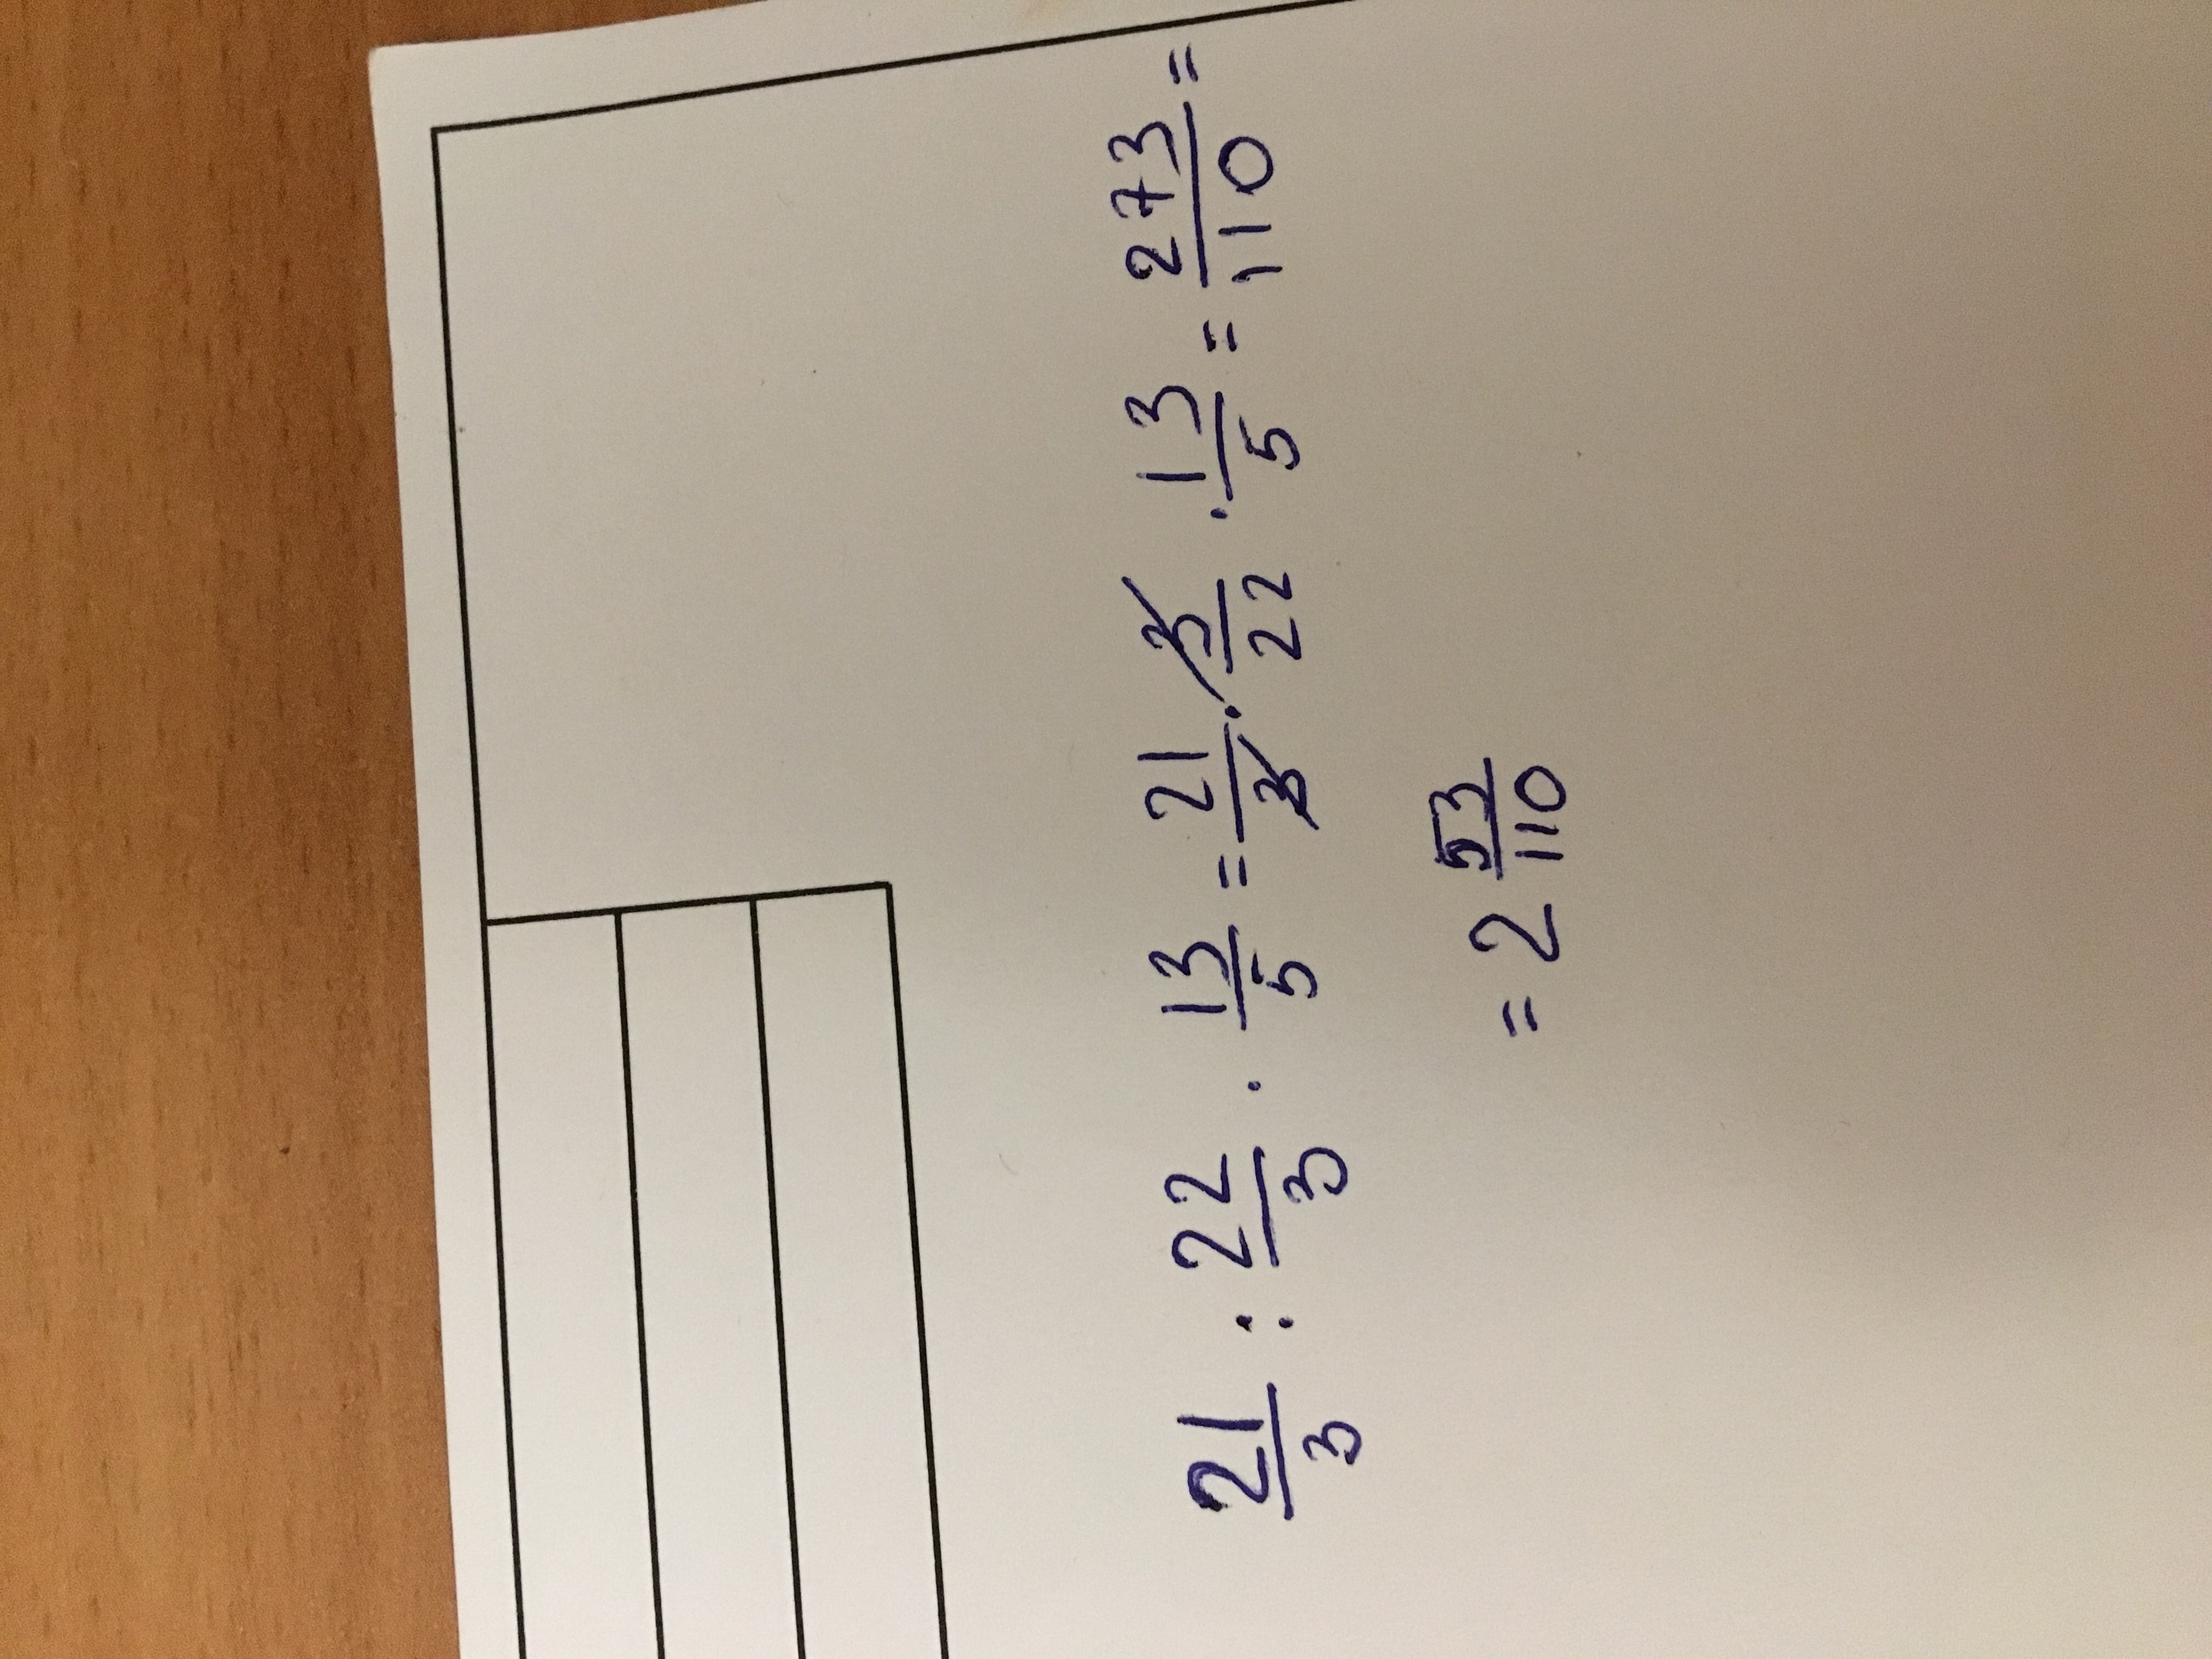 21/3 : 22/3 · 13/5 = 21/3 · 3/22 · 13/5 = 273/110 =
= 2 53/110